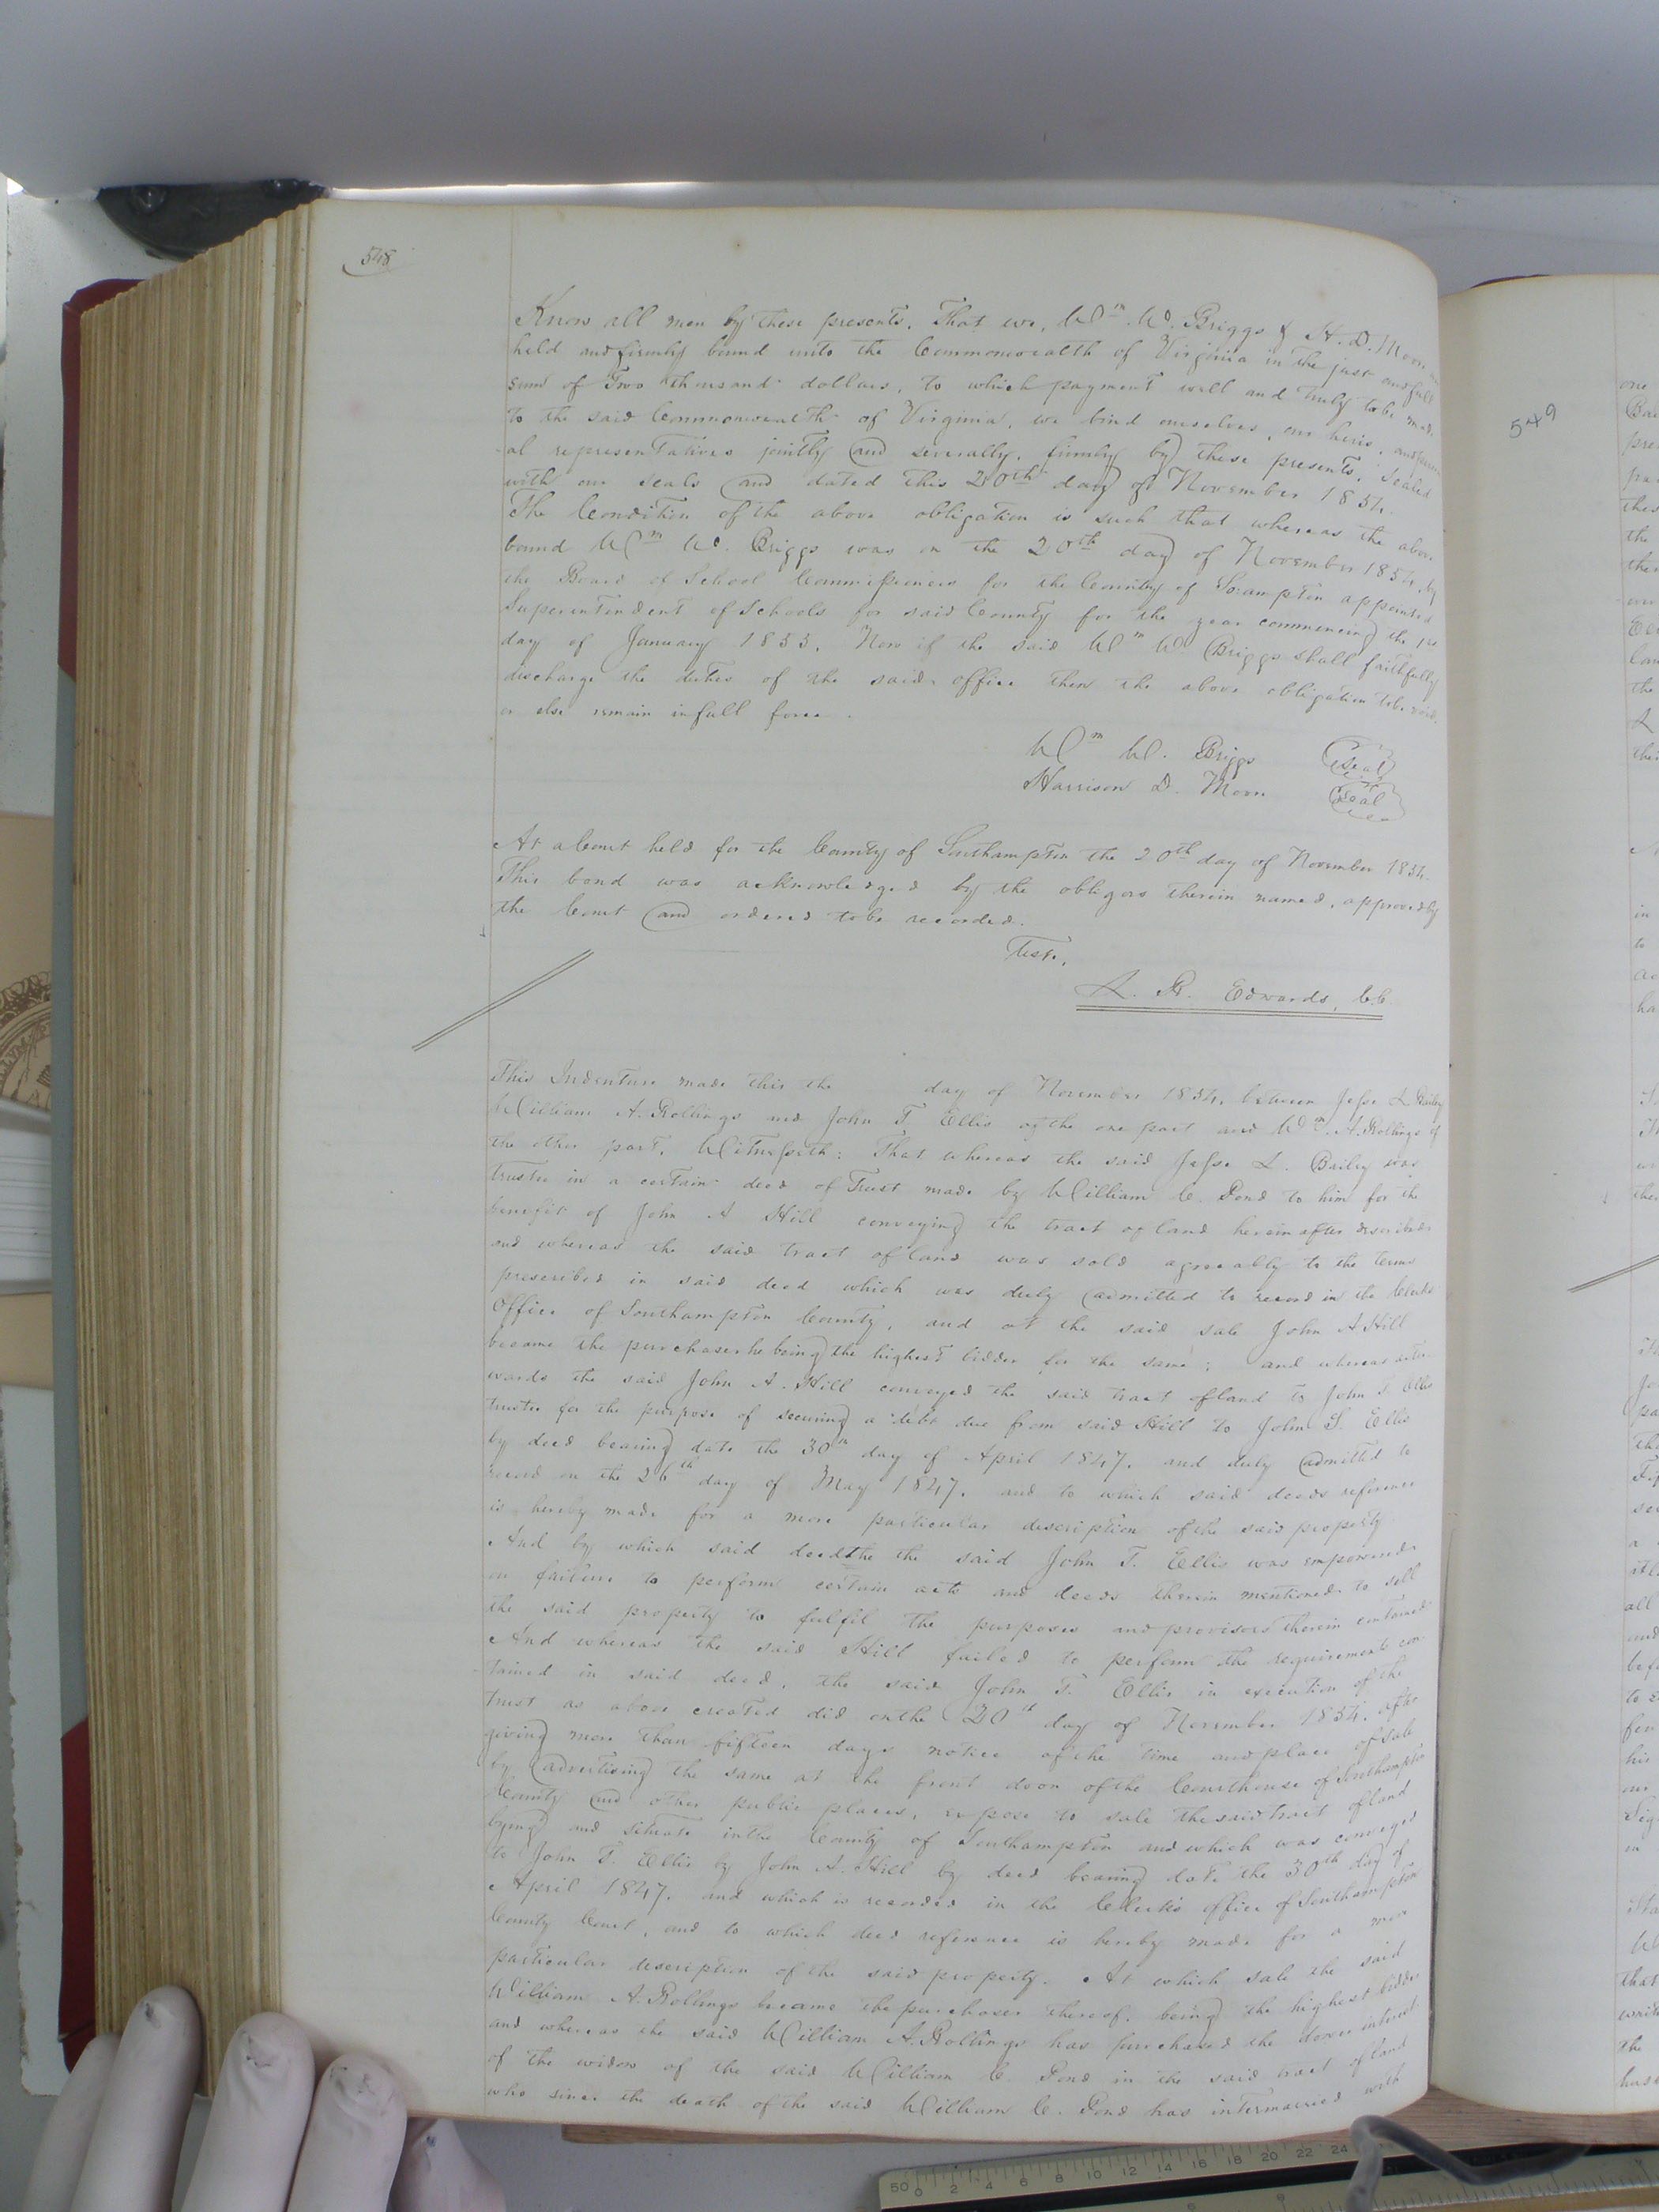 548
Know all men by these presents, That we, Wm. W. Briggs & H. D. Moon
held and firmly bound unto the Commonwealth of Virginia in the just and full
sum of Two thousand dollars, to which payment well and truly to be made
to the said Commonwealth of Virginia, we bind ourselves, our heirs, and person
-al representatives jointly and severally, firmly by these presents, Sealed
with our seals and dated this 20th day of November 1854.
The Condition of the above obligation is such that whereas the above
bound Wm W. Briggs was on the 20th day of November 1854, by
the Board of School Commissioners for the County of Soampton appointed
Superintendent of Schools for said County for the year commencing the 1st
day of January 1855. Now if the said Wm W Briggs shall faithfully
discharge the duties of the said office then the above obligation to be void,
or else remain in full force.
Wm W. Briggs Seal
Harrison D. Moon Seal
At a Court held for the County of Southampton the 20th day of November 1854.
This bond was acknowledged by the obligors therein named, approved by
the Court and ordered to be recorded.
Test,
L. R. Edwards, C.C.
This Indenture made this the day of November 1854, between Jesse L. Bailey
William A. Rollings and John T. Ellis of the one part and Wm. A. Rollings of
the other part. Witnesseth: That whereas the said Jesse L. Bailey was
trustee in a certain deed of Trust made by William C. Pond to him for the
benefit of John A Hill conveying the tract of land herein after described
and whereas the said tract of land was sold agreeably to the terms
prescribed in said deed which was duly admitted to record in the Clerks
Office of Southampton County, and at the said sale John A Hill
became the purchaser he being the highest bidder for the same; and whereas after-
wards the said John A. Hill conveyed the said tract of land to John T. Ellis
trustee for the purpose of securing a debt due from said Hill to John S. Ellis
by deed bearing date the 30th day of April 1847. and duly admitted to
record on the 26th day of May 1847. and to which said deeds reference
is hereby made for a more particular description of the said property
And by which said deed the the said John T. Ellis was empowered
on failure to perform certain acts and deeds therein mentioned to sell
the said property to fulfil the purposes and provisors therein contained
And whereas the said Hill failed to perform the requirement con-
tained in said deed, the said John T. Ellis in execution of the
trust as above created did on the 20th day of November 1854. after
giving more than fifteen days notice of the time and place of sale
by advertising the same at the front door of the Courthouse of Southampton
County and other public places, expose to sale the said tract of land
lying and situate in the County of Southampton and which was conveyed
to John T. Ellis by John A. Hill by deed bearing date the 30th day of
April 1847. and which is recorded in the Clerk's office of Southampton
County Court, and to which deed reference is hereby made for a more
particular description of the said property. At which sale the said
William A. Rollings became the purchaser thereof, being the highest bidder
and whereas the said William A. Rollings has purchased the dower interest
of the widow of the said William C. Pond in the said tract of land
who since the death of the said William C. Pond has intermarried with
549
50 0 2 4 6 8 10 12 14 16 18 20 22 24